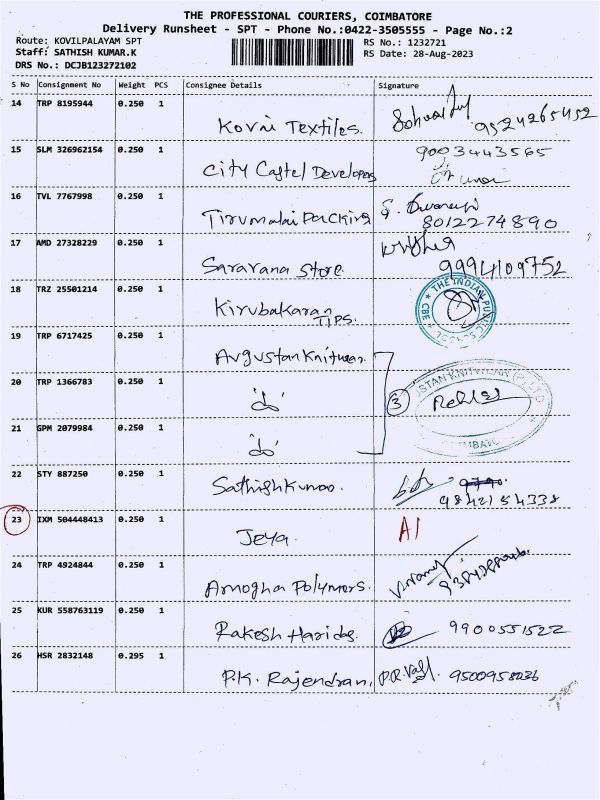 THE PROFESSIONAL COURIERS, COIMBATORE
Delivery Runsheet - SPT - Phone No.:0422-3505555 - Page No.:2
Route: KOVILPALAYAM SPT
RS No.: 1232721
Staff: SATHISH KUMAR.K
RS Date: 28-Aug-2023
DRS No.: DCJB123272102
S No Consignment No Weight PCS Consignee Details Signature
14 TRP 8195944 0.250 1
Kovai Textiles. 9524265452
15 SLM 326962154 0.250 1 9003443565
City Castel Developers
16 TVL 7767998 0.250 1
Tirumalai Packing 8012274890
17 AMD 27328229 0.250 1
Saravana Store. 9994109752
18 TRZ 25501214 0.250 1 THE INDIAN PUBLIC SCHOOL CBE
Kirubakaran
TIPS.
19 TRP 6717425 0.250 1
Avgustan Knitwear
20 TRP 1366783 0.250 1
do 3
21 GPM 2079984 0.250 1
do
22 STY 887250 0.250 1
Sathishkumar. 9842154338
23 IXM 504448413 0.250 1
Jeya. A1
24 TRP 4924844 0.250 1
Amogha Polymers.
25 KUR 558763119 0.250 1
Rakesh Haridas. 9900551522
26 HSR 2832148 0.295 1
P.K. Rajendran. 9500958036